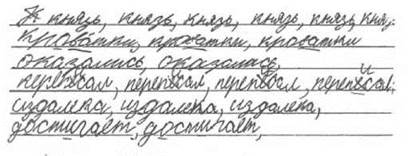 К князь, князь, князь, князь, князь, княз-
кроватки, кроватки, кроватки
оказались, оказались,
переписал, переписал, переписал, переписал.
издалека, издалека, издалека,
достигает, достигает,